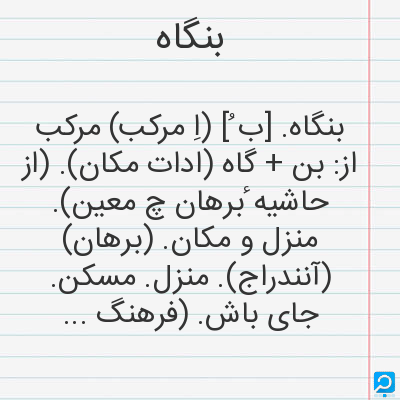 بنگاه
بنگاه. [ب ُ] (اِ مرکب) مرکب
از: بن + گاه (ادات مکان). (از
حاشیه ٔبرهان چ معین).
منزل و مکان. (برهان)
(آنندراج). منزل. مسکن.
جای باش. (فرهنگ ...